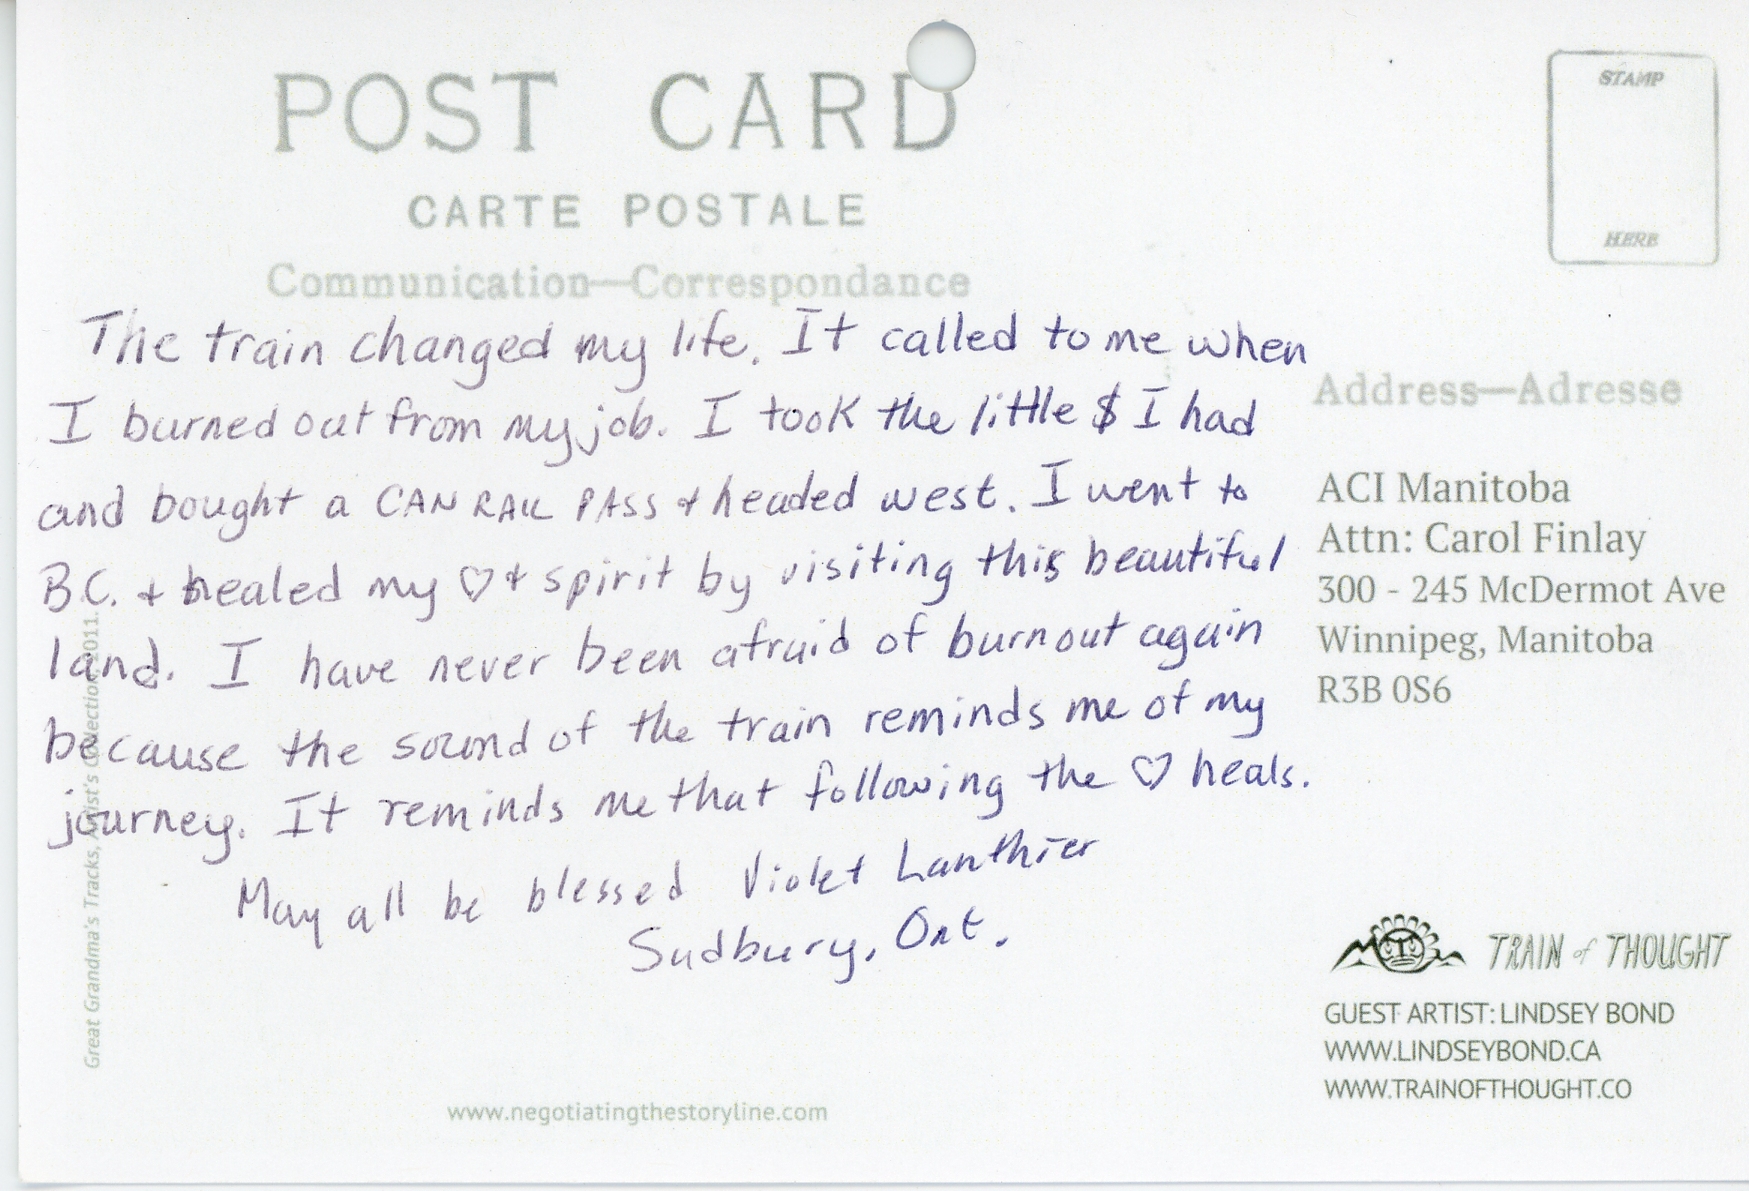 POST CARD
CARTE POSTALE
Communication—Correspondance
STAMP
HERE
The train changed my life. It called to me when
I burned out from my job. I took the little $ I had
and bought a CAN RAIL PASS + headed west. I went to
B.C. + healed my ♡ + spirit by visiting this beautiful
land. I have never been afraid of burnout again
because the sound of the train reminds me of my
journey. It reminds me that following the ♡ heals.
May all be blessed Violet Lanthier
Sudbury, Ont.
Address—Adresse
ACI Manitoba
Attn: Carol Finlay
300 - 245 McDermot Ave
Winnipeg, Manitoba
R3B 0S6
TRAIN of THOUGHT
GUEST ARTIST: LINDSEY BOND
WWW.LINDSEYBOND.CA
WWW.TRAINOFTHOUGHT.CO
Great Grandma's Tracks, Artist's Collection, 2011.
www.negotiatingthestoryline.com